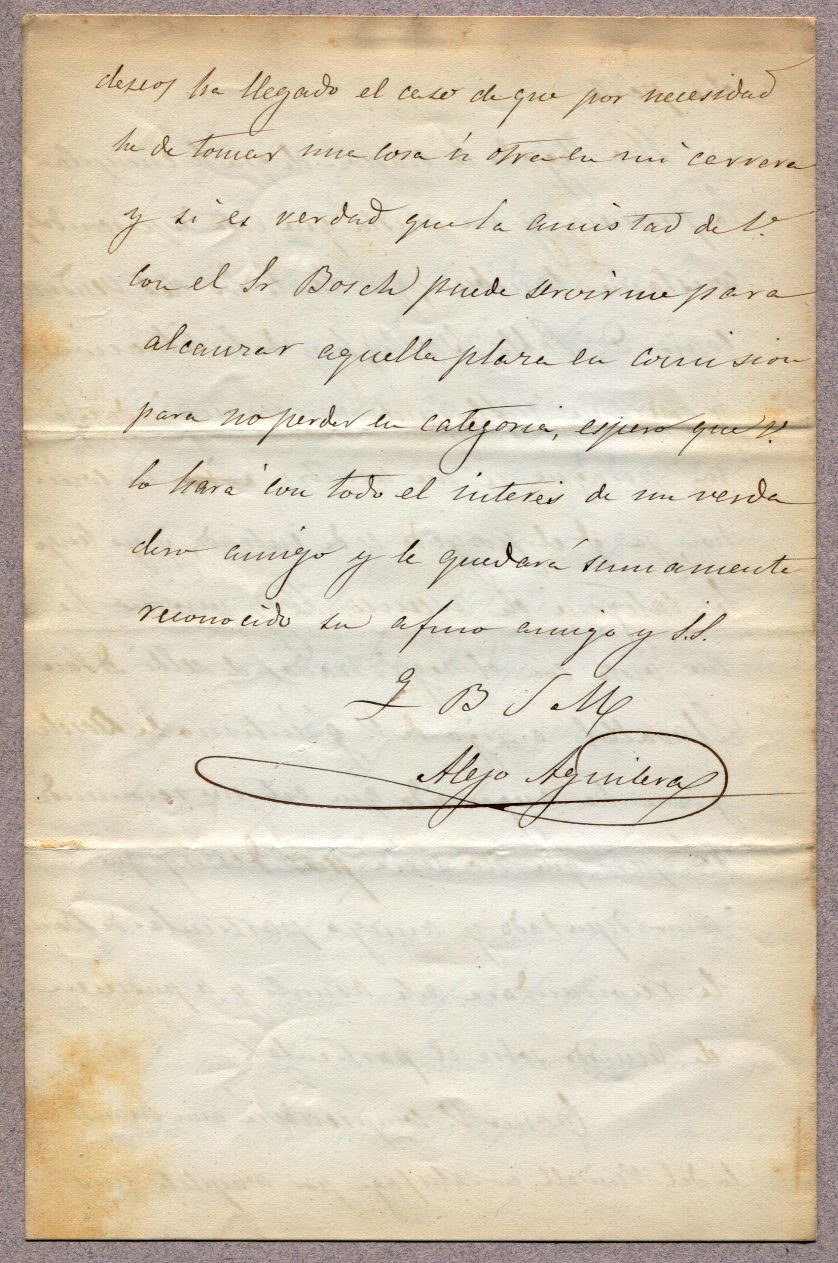 deseos ha llegado el caso de que por necesidad
he de tomar una cosa ú otra en mi carrera
y si es verdad que la amistad de V.
con el Sr Bosch puede servirme para
alcanzar aquella plaza en comision
para no perder en categoria, espero que V.
lo hará con todo el interés de un verda
dero amigo y le quedará sumamente
reconocido su afmo amigo y S.S.
q B S M
Alejo Aguilera